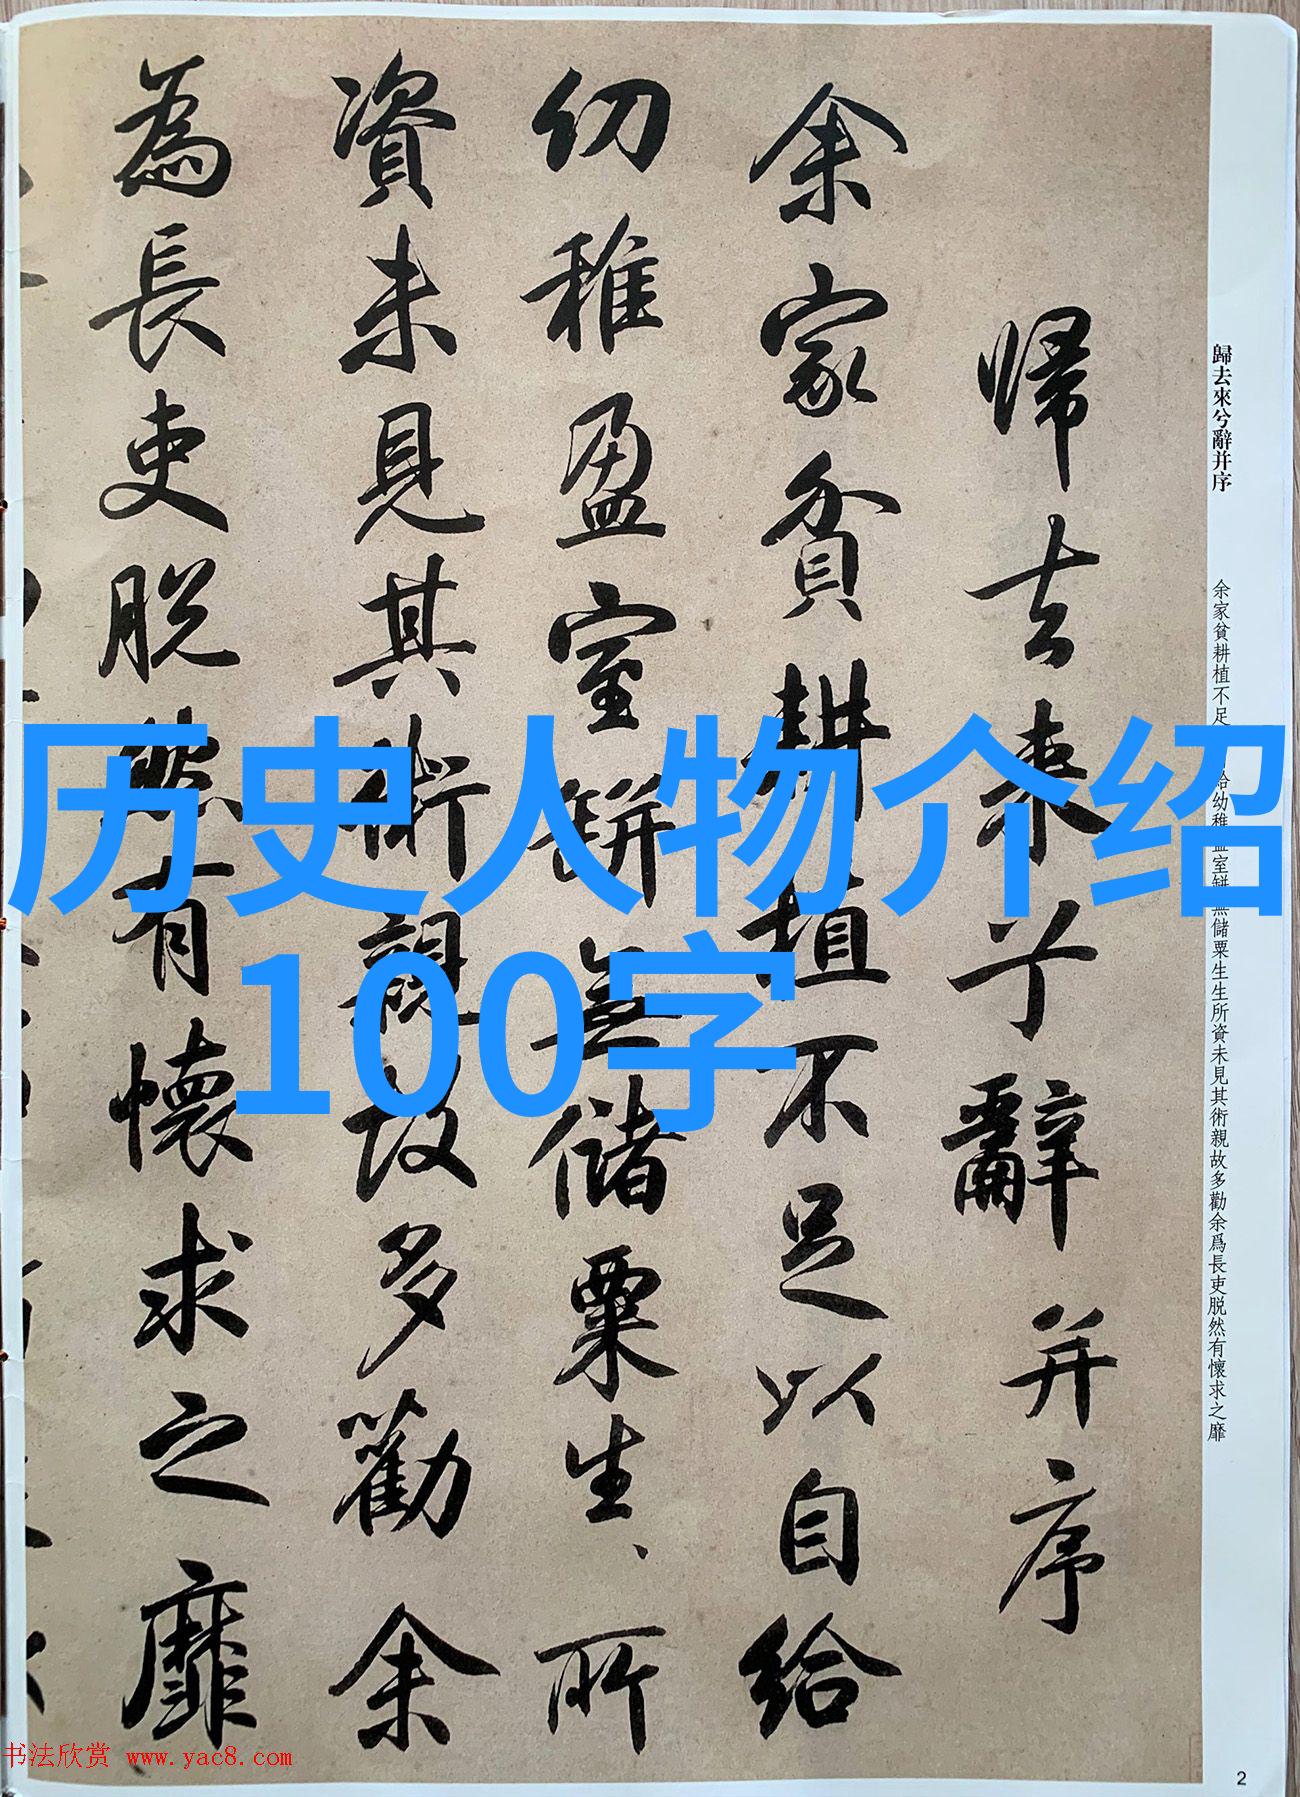 歸去來兮辭并序
余家貧耕植不足以自給
幼稚盈室缾無儲粟生生所
資未見其術親故多勸余
為長吏脫然有懷求之靡
歸去來兮辭并序
余家貧耕植不足
給幼稚盈室缾無儲粟生生所資未見其術親故多勸余爲長吏脱然有懷求之靡
历史人物介绍
100字
书法欣赏 www.yac8.com
2